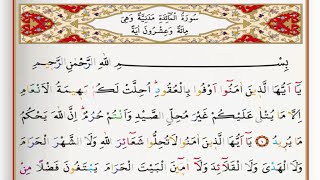 سُورَةُ الْمَائِدَةِ مَدَنِيَّةٌ وَهِيَ
مِائَةٌ وَعِشْرُونَ اٰيَةً
بِسْمِ اللهِ الرَّحْمٰنِ الرَّحِيمِ
يَٓا اَيُّهَا الَّذِينَ اٰمَنُٓوا اَوْفُوا بِالْعُقُودِ اُحِلَّتْ لَكُمْ بَهِيمَةُ الْاَنْعَامِ
اِلَّا مَا يُتْلٰى عَلَيْكُمْ غَيْرَ مُحِلِّي الصَّيْدِ وَاَنْتُمْ حُرُمٌ اِنَّ اللهَ يَحْكُمُ
مَا يُرِيدُ ١ يَٓا اَيُّهَا الَّذِينَ اٰمَنُوا لَا تُحِلُّوا شَعَٓائِرَ اللهِ وَلَا الشَّهْرَ الْحَرَامَ
وَلَا الْهَدْيَ وَلَا الْقَلَٓائِدَ وَلَٓا اٰمِّينَ الْبَيْتَ الْحَرَامَ يَبْتَغُونَ فَضْلًا مِنْ